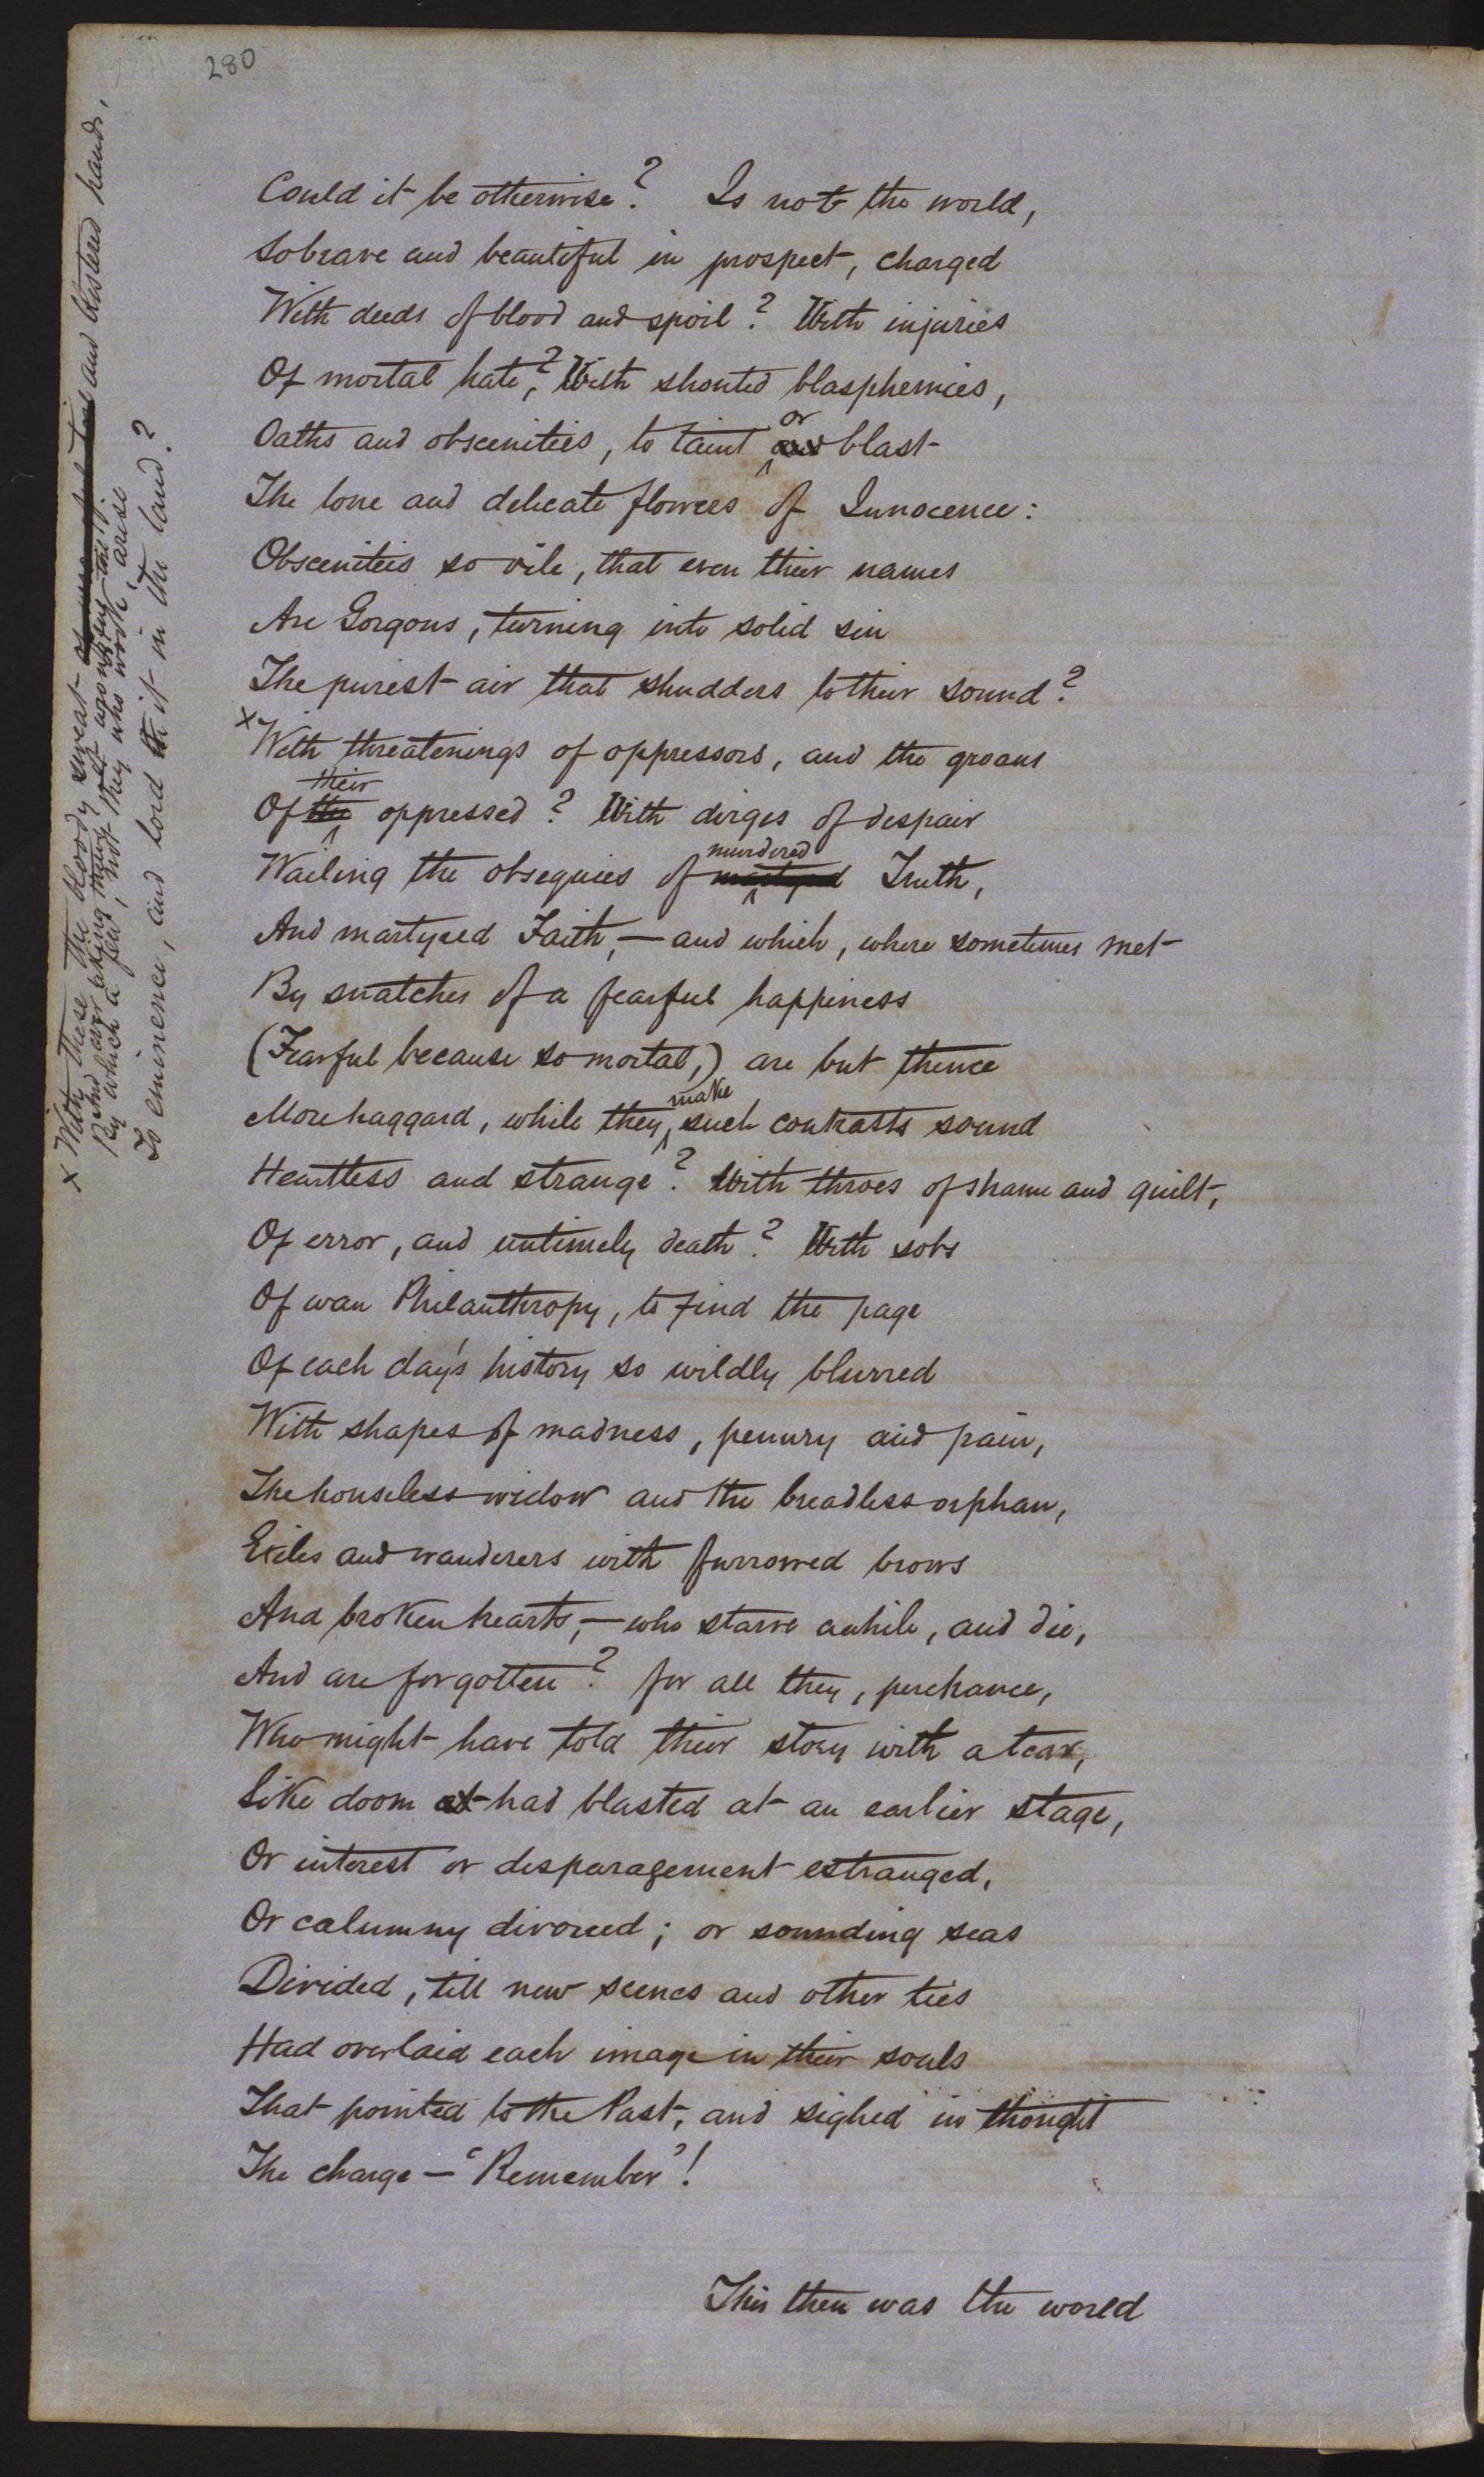 280
Could it be otherwise? Is not the world,
So brave and beautiful in prospect, charged
With deeds of blood and spoil? With injuries
Of mortal hate,? With shouted blasphemies,
or
Oaths and obscenities, to taint and blast
The lone and delicate flowers of Innocence:
Obscenities so vile, that even their names
Are Gorgons, turning into solid sin
The purest air that shudders to their sound?
x With threatenings of oppressors, and the groans
their
Of the oppressed? With dirges of despair
murdered
Wailing the obsequies of martyred Truth,
And martyred Faith,—and which, where sometimes met
By snatches of a fearful happiness
(Fearful because so mortal,) are but thence
make
More haggard, while they such contrasts sound
Heartless and strange? With throes of shame and guilt,
Of error, and untimely death? With sobs
Of wan Philanthropy, to find the page
Of each day's history so wildly blurred
With shapes of madness, penury and pain,
The houseless widow and the breadless orphan,
Exiles and wanderers with furrowed brows
And broken hearts,—who starve awhile, and die,
And are forgotten? for all they, perchance,
Who might have told their story with a tear,
Like doom had blasted at an earlier stage,
Or interest or disparagement estranged,
Or calumny divorced; or sounding seas
Divided, till new scenes and other ties
Had overlaid each image in their souls
That pointed to the Past, and sighed in thought
The charge—'Remember'!
This then was the world
x With these the bloody sweat and blistered hands,
And ever aking thews of agonizing toil
By which a few, not they who work, arise
To eminence, and lord it in the land?